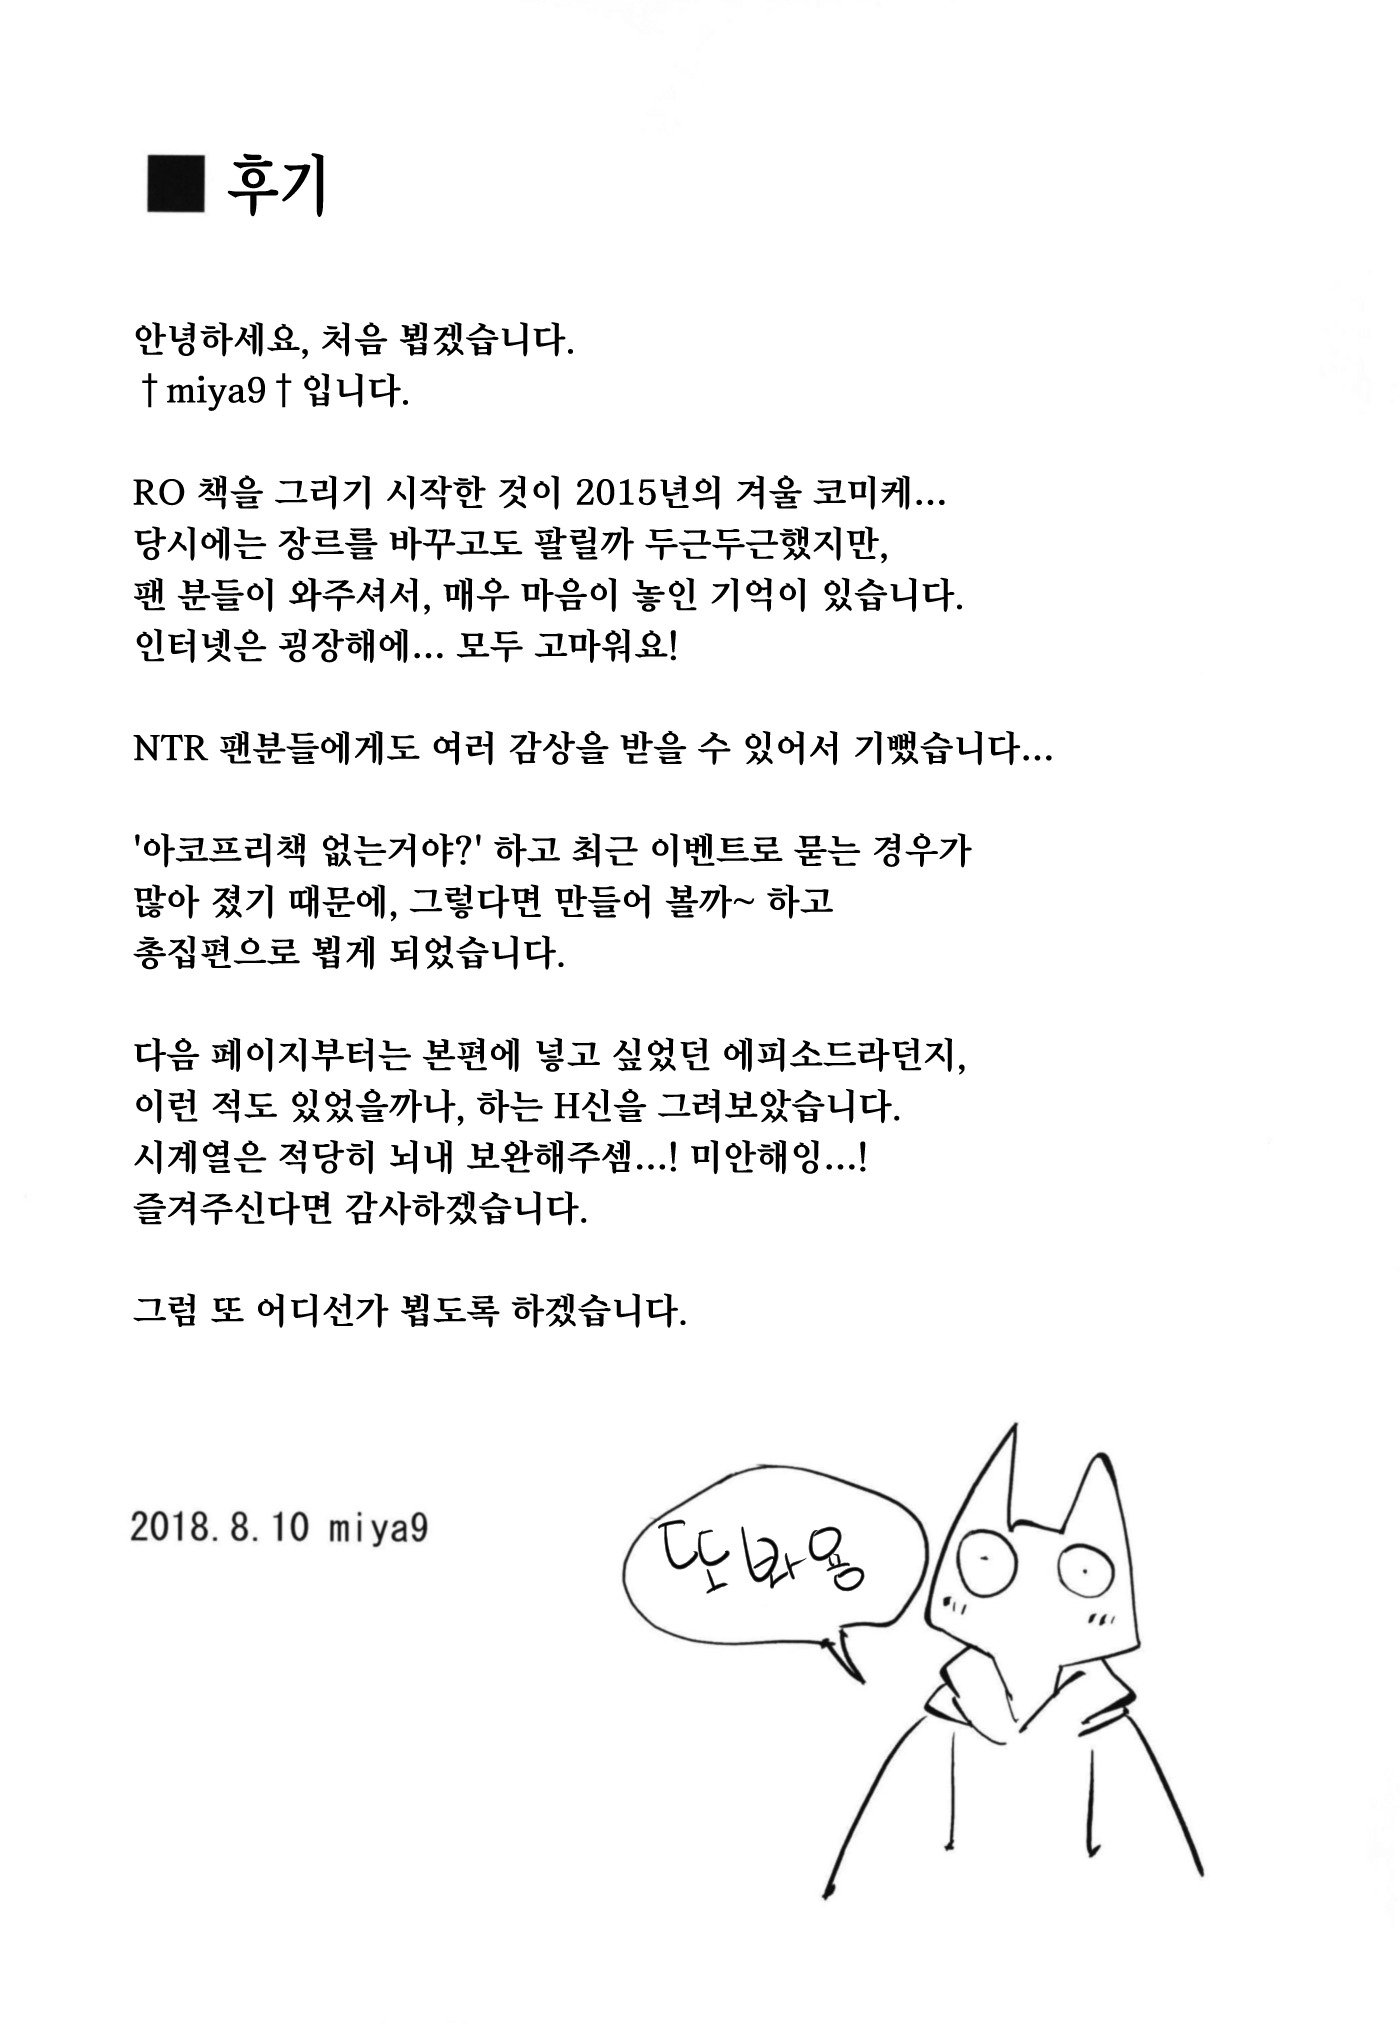 ■ 후기
안녕하세요, 처음 뵙겠습니다.
†miya9†입니다.
RO 책을 그리기 시작한 것이 2015년의 겨울 코미케...
당시에는 장르를 바꾸고도 팔릴까 두근두근했지만,
팬 분들이 와주셔서, 매우 마음이 놓인 기억이 있습니다.
인터넷은 굉장해에... 모두 고마워요!
NTR 팬분들에게도 여러 감상을 받을 수 있어서 기뻤습니다...
'아코프리책 없는거야?' 하고 최근 이벤트로 묻는 경우가
많아 졌기 때문에, 그렇다면 만들어 볼까~ 하고
총집편으로 뵙게 되었습니다.
다음 페이지부터는 본편에 넣고 싶었던 에피소드라던지,
이런 적도 있었을까나, 하는 H신을 그려보았습니다.
시계열은 적당히 뇌내 보완해주셈...! 미안해잉...!
즐겨주신다면 감사하겠습니다.
그럼 또 어디선가 뵙도록 하겠습니다.
2018.8.10 miya9
또봐용